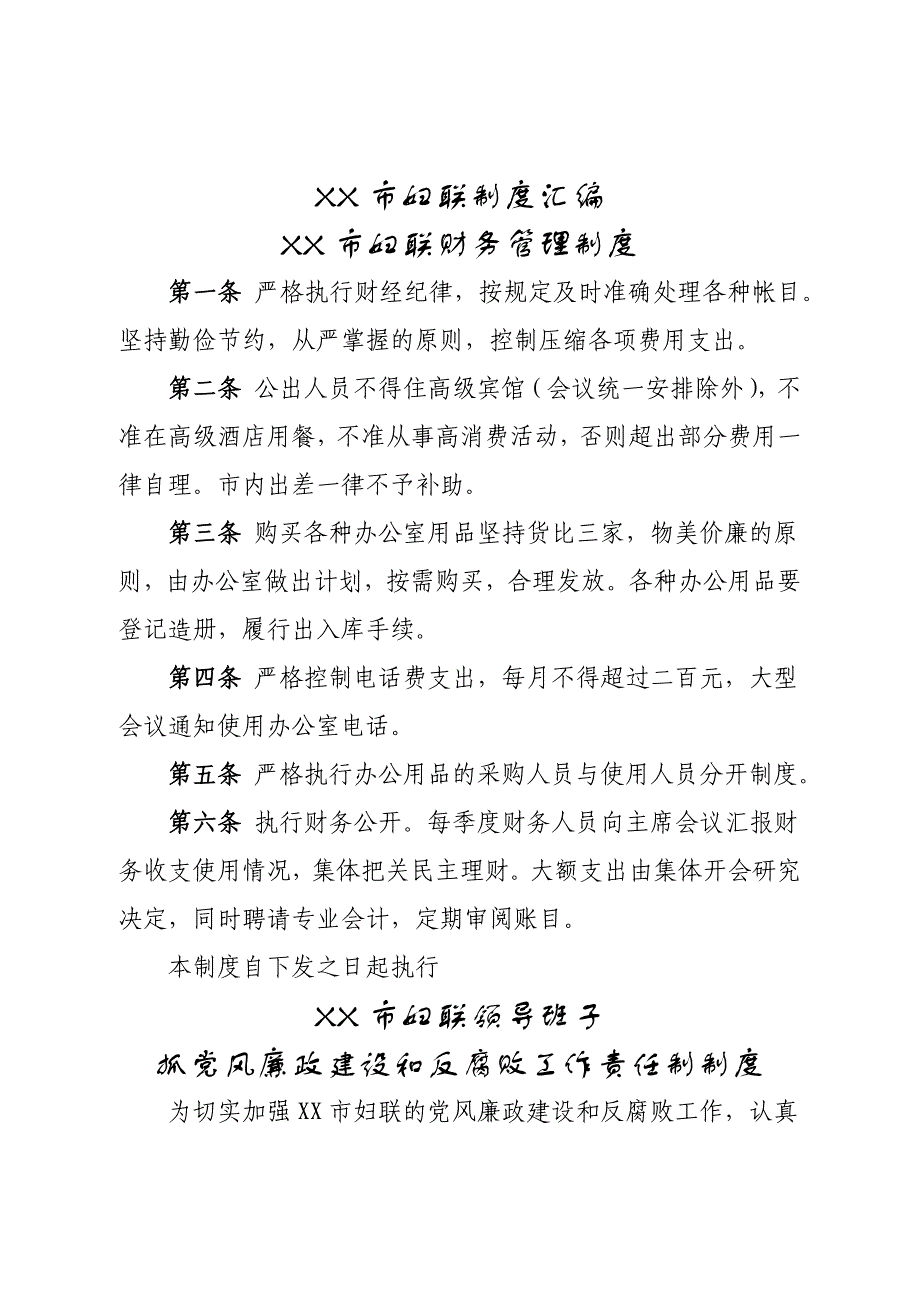 XX 市妇联制度汇编
XX 市妇联财务管理制度
第一条 严格执行财经纪律，按规定及时准确处理各种帐目。
坚持勤俭节约，从严掌握的原则，控制压缩各项费用支出。
第二条 公出人员不得住高级宾馆（会议统一安排除外），不
准在高级酒店用餐，不准从事高消费活动，否则超出部分费用一
律自理。市内出差一律不予补助。
第三条 购买各种办公室用品坚持货比三家，物美价廉的原
则，由办公室做出计划，按需购买，合理发放。各种办公用品要
登记造册，履行出入库手续。
第四条 严格控制电话费支出，每月不得超过二百元，大型
会议通知使用办公室电话。
第五条 严格执行办公用品的采购人员与使用人员分开制度。
第六条 执行财务公开。每季度财务人员向主席会议汇报财
务收支使用情况，集体把关民主理财。大额支出由集体开会研究
决定，同时聘请专业会计，定期审阅账目。
本制度自下发之日起执行
XX 市妇联领导班子
抓党风廉政建设和反腐败工作责任制制度
为切实加强 XX 市妇联的党风廉政建设和反腐败工作，认真